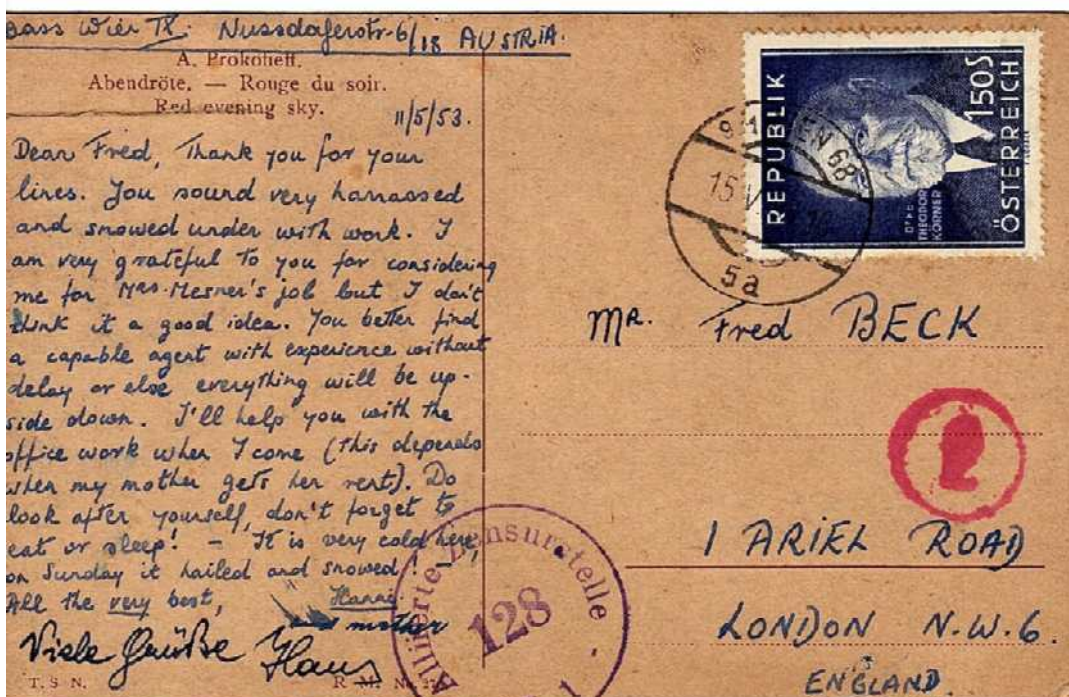 Bass Wien IX. Nussdaferstr. 6/18 AUSTRIA.
A. Prokofieff.
Abendröte. — Rouge du soir.
Red evening sky.
11/5/53.
Dear Fred, Thank you for your
lines. You sound very harrassed
and snowed under with work. I
am very grateful to you for considering
me for Mrs. Mesner's job but I don't
think it a good idea. You better find
a capable agent with experience without
delay or else everything will be up-
side down. I'll help you with the
office work when I come (this depends
when my mother gets her rent). Do
look after yourself, don't forget to
eat or sleep! – It is very cold here,
on Sunday it hailed and snowed! –
All the very best,
mother
Viele Grüße Hans
T. S. N. R. M. No.
REPUBLIK
ÖSTERREICH
150 S
THEODOR
KÖRNER
68
15 V
5a
MR. Fred BECK
1 ARIEL ROAD
LONDON N.W.6.
ENGLAND.
Alliierte Zensurstelle
128